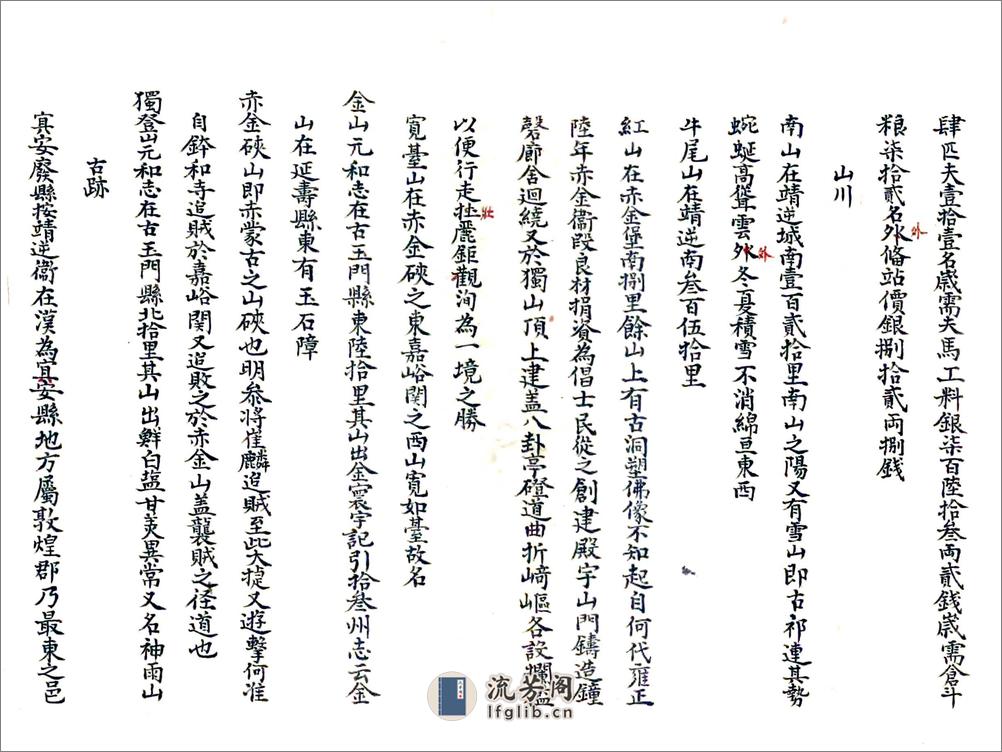 肆匹夫壹拾壹名歲需夫馬工料銀柒百陸拾叁兩貳錢歲需倉斗
粮柒拾貳名外偹站價銀捌拾貳兩捌錢
外
山川
南山在靖逆城南壹百貳拾里南山之陽又有雪山即古祁連其勢
蜿蜒高聳雲外冬夏積雪不消綿亘東西
外
牛尾山在靖逆南叁百伍拾里
紅山在赤金堡南捌里餘山上有古洞塑佛像不知起自何代雍正
陸年赤金衞段良材捐資為倡士民從之創建殿宇山門鑄造鐘
磬廊舍迴繞又於獨山頂上建盖八卦亭磴道曲折﨑嶇各設欄檻
以便行走壯麗鉅觀洵為一境之勝
壯
寬臺山在赤金硤之東嘉峪関之西山寬如臺故名
金山元和志在古玉門縣東陸拾里其山出金寰宇記引拾叁州志云金
山在延壽縣東有玉石障
赤金硤山即赤蒙古之山硤也明叅將崔麟追賊至此大㨗又遊擊何淮
自鉢和寺追賊於嘉峪関又追敗之於赤金山盖襲賊之徑道也
獨登山元和志在古玉門縣北拾里其山出鮮白盐甘美異常又名神雨山
古跡
寘安廢縣按靖逆衞在漢為宜安縣地方屬敦煌郡乃最東之邑
流芳阁
lfglib.cn